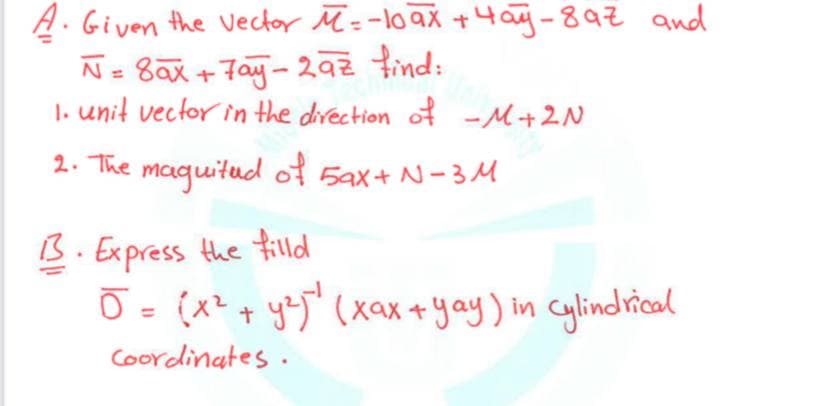 A. Given the vector M̅ = -10a̅x̅ + 4a̅y̅ - 8a̅z̅ and
N̅ = 8a̅x̅ + 7a̅y̅ - 2a̅z̅ find:
1. unit vector in the direction of -M+2N
2. The maguitud of 5ax + N - 3M
B. Express the filld
D̅ = (x² + y²)⁻¹ (xax + yay) in cylindrical
coordinates.